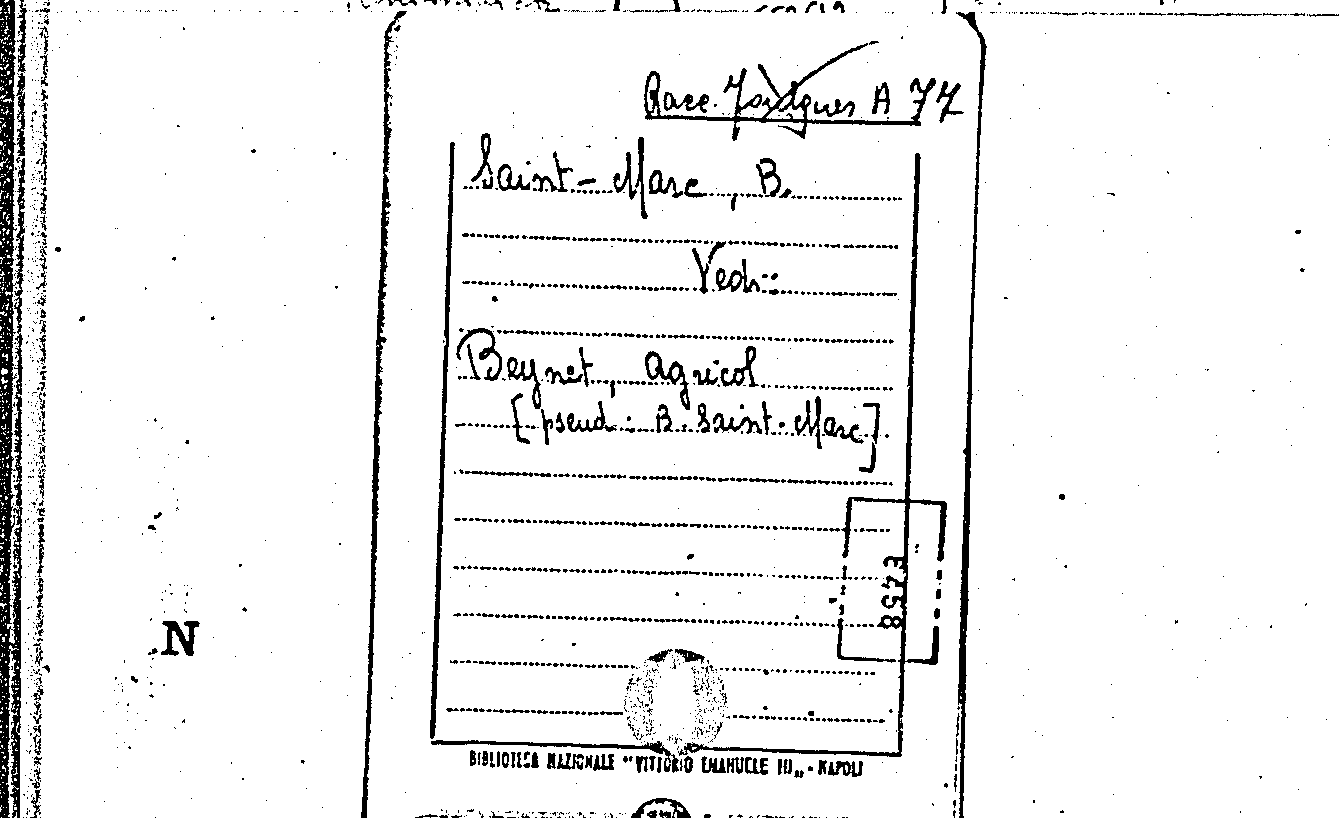 Race. A 77
Saint-Marc, B.
Vedi:
Beynet, Agricol
[pseud: B. Saint-Marc]
E458
N
BIBLIOTECA NAZIONALE "VITTORIO EMANUELE III„ - NAPOLI